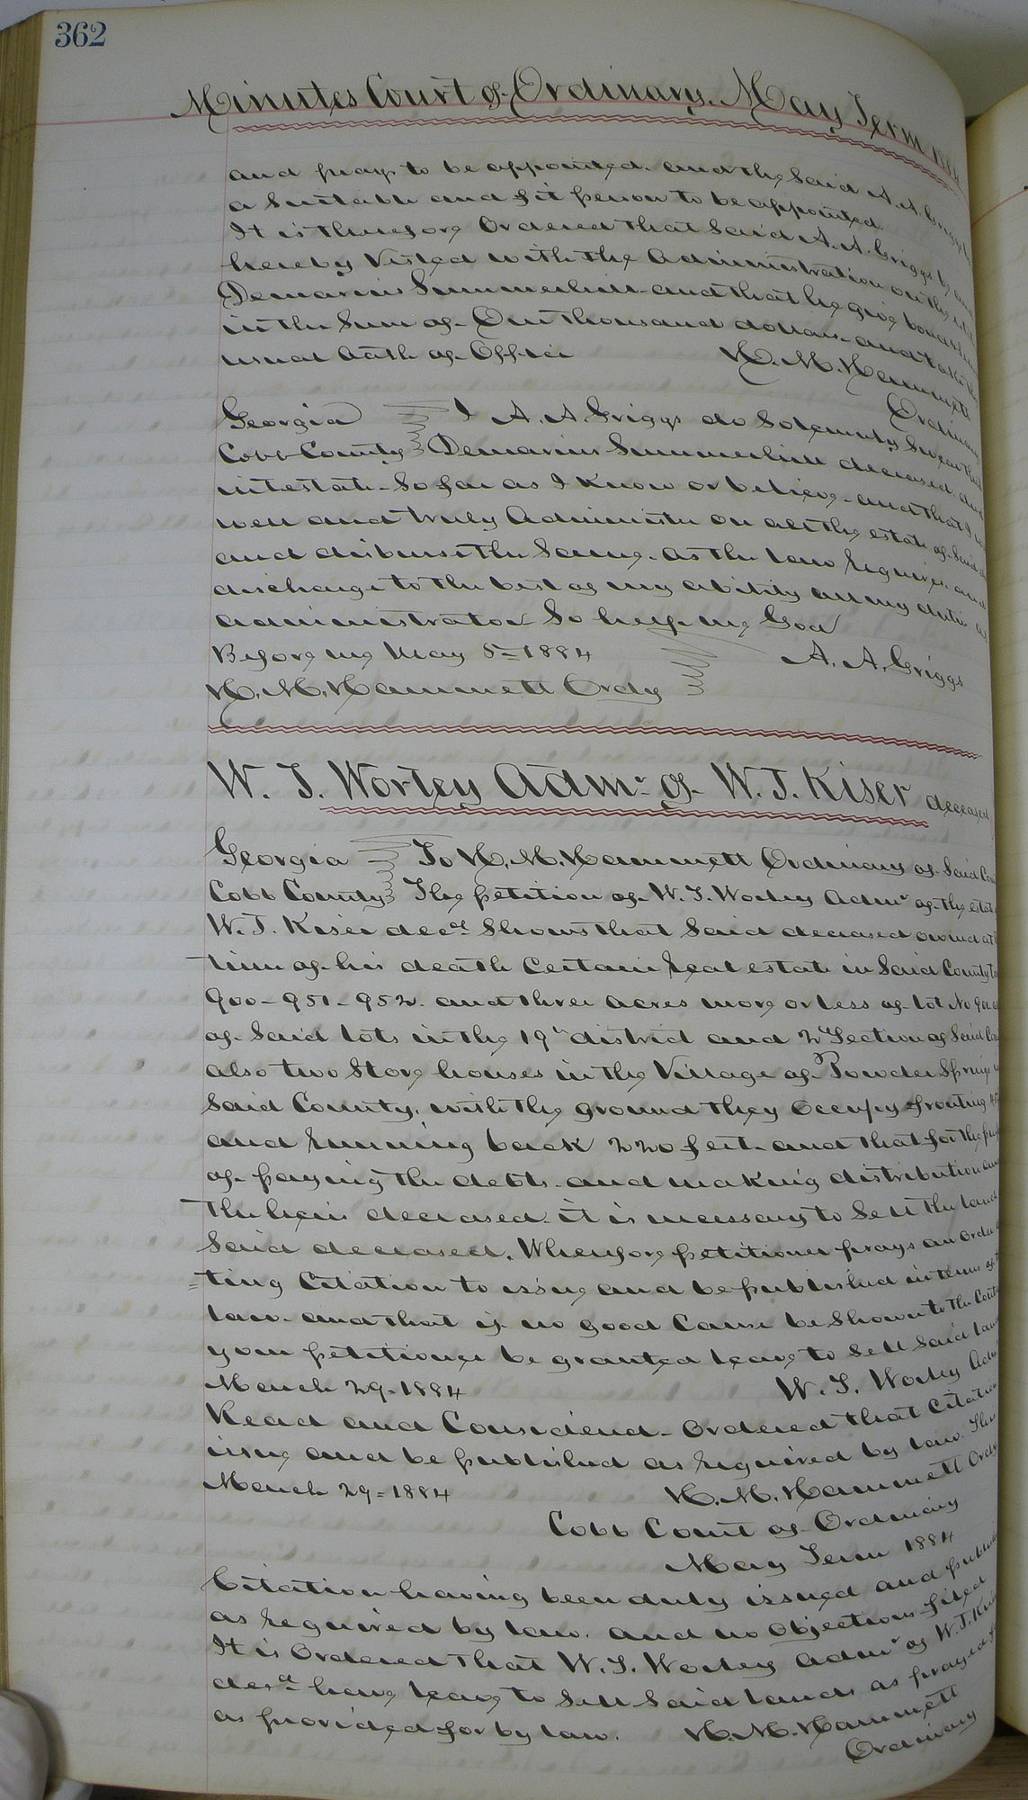 362
Minutes Court of Ordinary. May Term 1884
and prays to be appointed. and the Said A. A. Griggs
a Suitable and fit person to be appointed
It is therefore Ordered that Said A. A. Griggs be and
hereby Vested with the Administration on the
Demarius Summerlin and that he give bond
in the Sum of One thousand dollars and take the
usual Oath of Office H. M. Hammett
Ordinary
Georgia I A. A. Griggs do Solemnly Swear that
Cobb County Demarius Summerlin deceased died
intestate So far as I Know or believe and that I
well and truly Administer on all the estate of Said
and disburse the Same. as the law requires and
discharge to the best of my ability all my duties
administrator So help me God
Before me May 5= 1884 A. A. Griggs
H. M. Hammett Ordy
W. T. Worley Admr of W. T. Kiser deceased
Georgia To H. M. Hammett Ordinary of Said
Cobb County The petition of W. T. Worley admr of the
W. T. Kiser decd Shows that Said deceased owned at
time of his death Certain real estate in Said County
900 - 951 - 952. and three acres more or less of lot No
of Said lots in the 19th district and 2d Section of Said
also two Store houses in the Village of Powder Springs
Said County. with the ground they Occupy fronting
and running back 220 feet. and that for the
of paying the debts. and making distribution
the heirs deceased. it is necessary to Sell the land
Said deceased. Wherefore petitioner prays an Order
=ting Citation to issue and be published in terms of
law. and that if no good Cause be Shown to the
your petitioner be granted leave to Sell Said
March 29= 1884 W. T. Worley
Read and Considered. Ordered that Citation
issue and be published as required by law.
March 29= 1884 H. M. Hammett Ordy
Cobb Court of Ordinary
May Term 1884
Citation having been duly issued and
as required by law. and no Objections filed
It is Ordered that W. T. Worley admr of W. T.
decd have leave to Sell Said lands as prayed
as provided for by law. H. M. Hammett
Ordinary